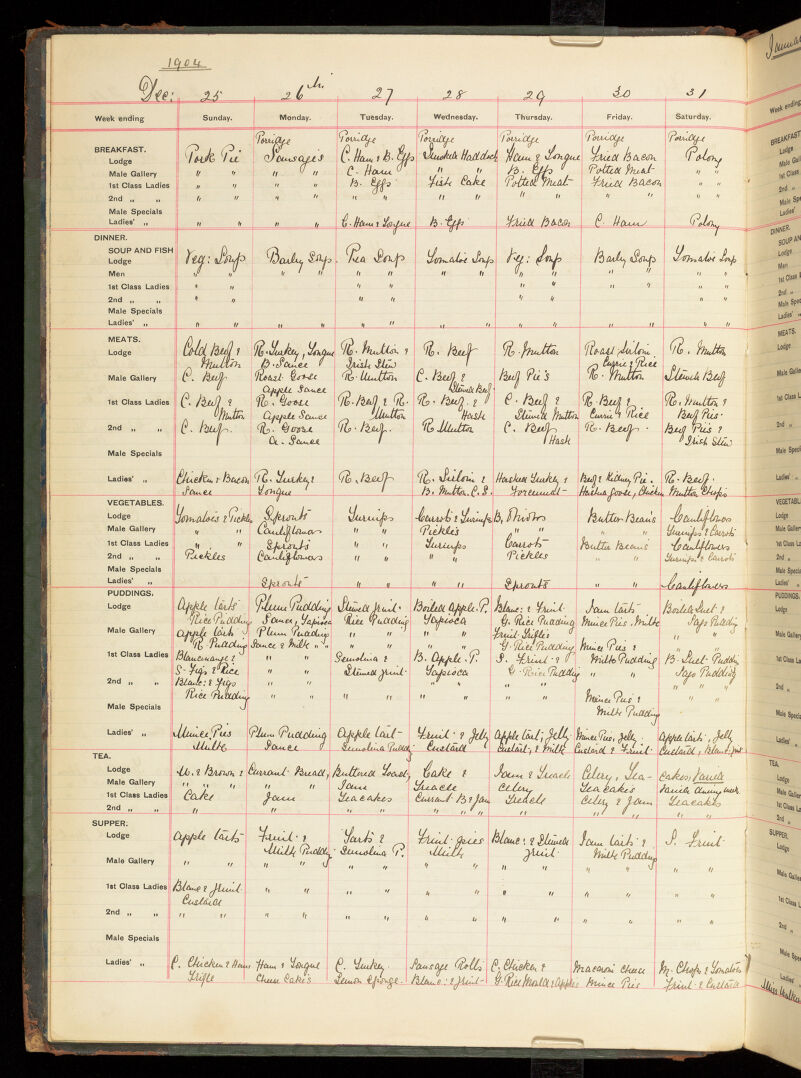 1904
Dec: 25 26th 27 28 29 30 31
Week ending Sunday. Monday. Tuesday. Wednesday. Thursday. Friday. Saturday.
BREAKFAST. Porridge Porridge Porridge Porridge Porridge Porridge
Lodge Pork Pie Sausages C. Ham & B. Eggs Smoked Haddock Ham & Tongue Fried Bacon Polony
Male Gallery " " " " C. Ham " " B. Eggs Potted Meat " "
1st Class Ladies " " " " B. Eggs Fish Cake Potted Meat Fried Bacon " "
2nd " " " " " " " " " " " " " " " "
Male Specials
Ladies' " " " " " C. Ham & Tongue B. Eggs Fried Bacon C. Ham Polony
DINNER.
SOUP AND FISH
Lodge Veg: Soup Barley Soup. Pea Soup Tomatoe Soup Veg: Soup Barley Soup Tomatoe Soup
Men " " " " " " " " " " " " " "
1st Class Ladies " " " " " " " " " "
2nd " " " " " " " " " "
Male Specials
Ladies' " " " " " " " " " " " " " " "
MEATS.
Lodge Cold Beef & R. Turkey, Tongue R. Mutton & R. Beef R. Mutton Roast Sirloin R. Mutton
Mutton B. Sauce Irish Stew Currie & Rice
Male Gallery C. Beef Roast Goose R. Mutton C. Beef & Beef Pie's R. Mutton Stewed Beef
Apple Sauce Stewed Beef
1st Class Ladies C. Beef & R. Goose R. Beef & R. R. Beef & C. Beef & R. Beef & R. Mutton &
Mutton Apple Sauce Mutton Hash Stewed Mutton Currie & Rice Beef Pies
2nd " " C. Beef. R. Goose R. Beef. R. Mutton C. Beef R. Beef. Beef Pies &
A. Sauce Hash Irish Stew
Male Specials
Ladies' " Chicken & Bacon R. Turkey & R. Beef R. Sirloin & Hashed Turkey & Beef & Kidney Pie. R. Beef.
Sauce Tongue B. Mutton. C. S. Forcemeat Hashed Goose, Chicken Mutton Chops
VEGETABLES.
Lodge Tomatoes & Pickles Sprouts Turnips Carrots & Turnips B. Butter Beans Cauliflowers
Male Gallery " " Cauliflowers " " Pickles Turnips & Carrots
1st Class Ladies " " Sprouts " " Turnips Carrots Butter Beans Cauliflowers
2nd " " Pickles Cauliflowers " " " " Pickles " " Turnips & Carrots
Male Specials
Ladies' " Sprouts " " " " Sprouts " " Cauliflowers
PUDDINGS.
Lodge Apple tarts Plum Pudding Stewed fruit. Boiled Apple. P. Blanc: & Fruit Jam tarts Boiled Suet &
Rice Pudding Sauce, Tapioca Rice Pudding Tapioca G. Rice Pudding Mince Pies. Milk Sago Pudding
Male Gallery Apple tarts Plum Pudding " " " " Fruit Trifles " "
R. Pudding Sauce & Milk " " " " " G. Rice Pudding Mince Pies & " "
1st Class Ladies Blancmange & " " Semolina & B. Apple. P. S. Fruit & Milk Pudding B. Suet Pudding
S. Figs & Rice " " Stewed fruit Tapioca G. Rice Pudding " " Sago Pudding
2nd " " Blanc: & Figs " " " " " " " "
Rice Pudding " " " " " " " " Mince Pies & " "
Male Specials Milk Pudding
Ladies' " Mince Pies Plum Pudding Apple tart Fruit & Jelly Apple tart; Jelly Mince Pies, Jelly. Apple tarts, Jelly
Milk Sauce Semolina Pudding Custard Custard, & Milk Custard & Fruit Custard,
TEA.
Lodge W. & Brown & Currant Bread, Buttered Toast, Cake & Jam & Treacle Celery, Tea- Cakes
Male Gallery " " " " " " Jam Treacle Celery Tea cakes
1st Class Ladies Cake Jam Tea cakes Currant B & Jam Treacle Celery & Jam Tea cakes
2nd " " " " " " " " " " " " " " " "
SUPPER.
Lodge Apple tarts Fruit & Tarts & Fruit pies Blanc: & Stewed Jam tarts & S. Fruit
Milk Pudding Semolina P. Milk Fruit Milk Pudding
Male Gallery " " " " " " " " " " " "
1st Class Ladies Blanc & fruit " " " " " " " " " "
Custard
2nd " " " " " " " " " " " " " " " "
Male Specials
Ladies' " C. Chicken & Ham Ham & Tongue C. Turkey Sausage Rolls C. Chicken & Macaroni Cheese M. Chops & Tomatoes
Trifle Cheese Cakes Lemon Sponge. Blanc: & fruit G. Rice Mould & Apples Mince Pies Fruit & Custard